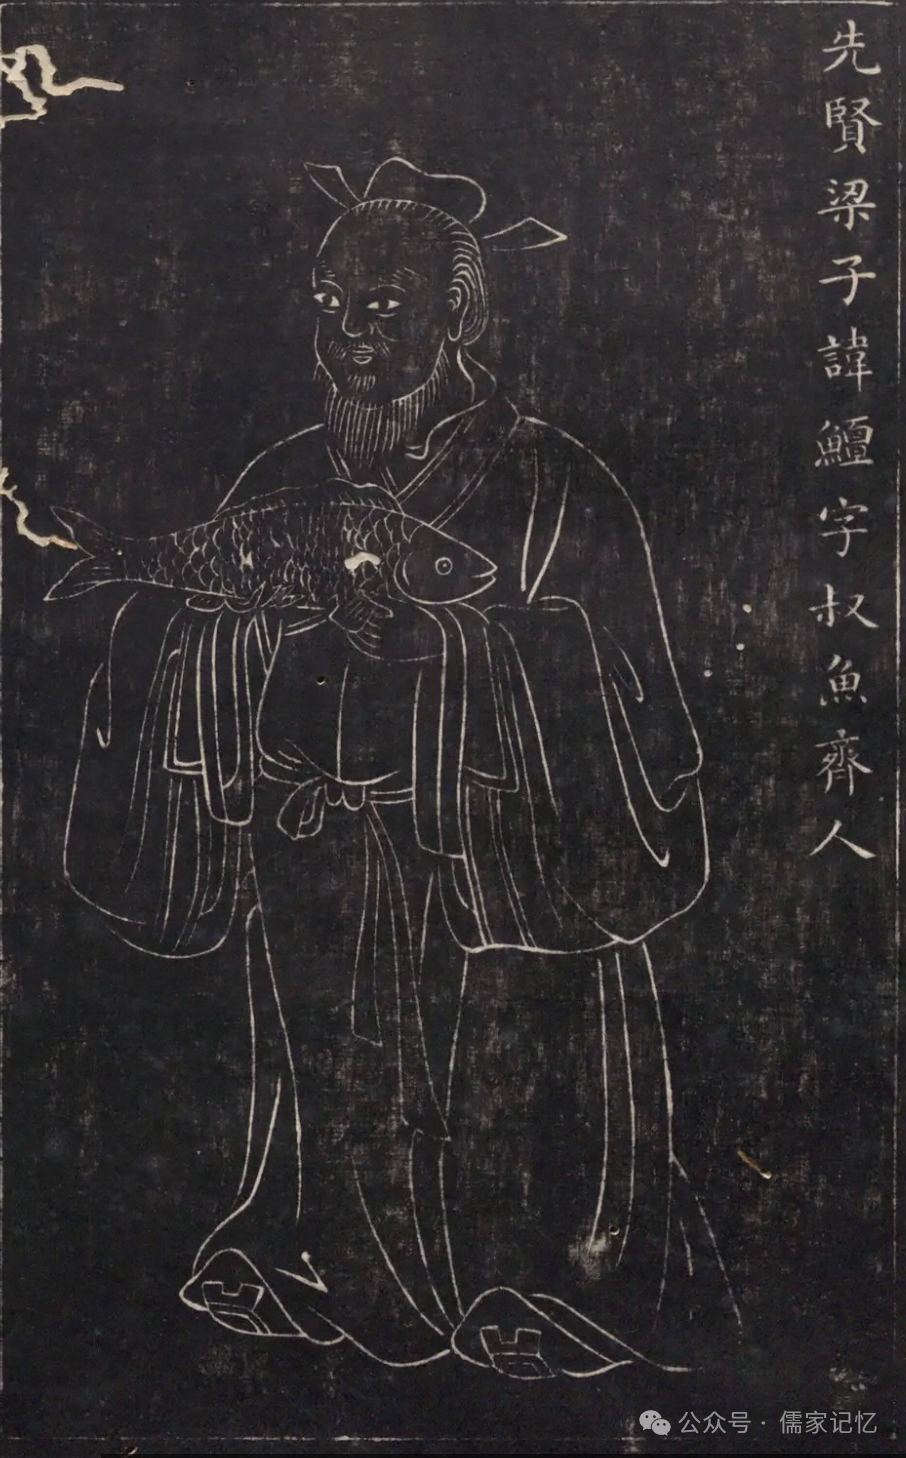 先賢梁子諱鱣字叔魚齊人
公众号 · 儒家记忆